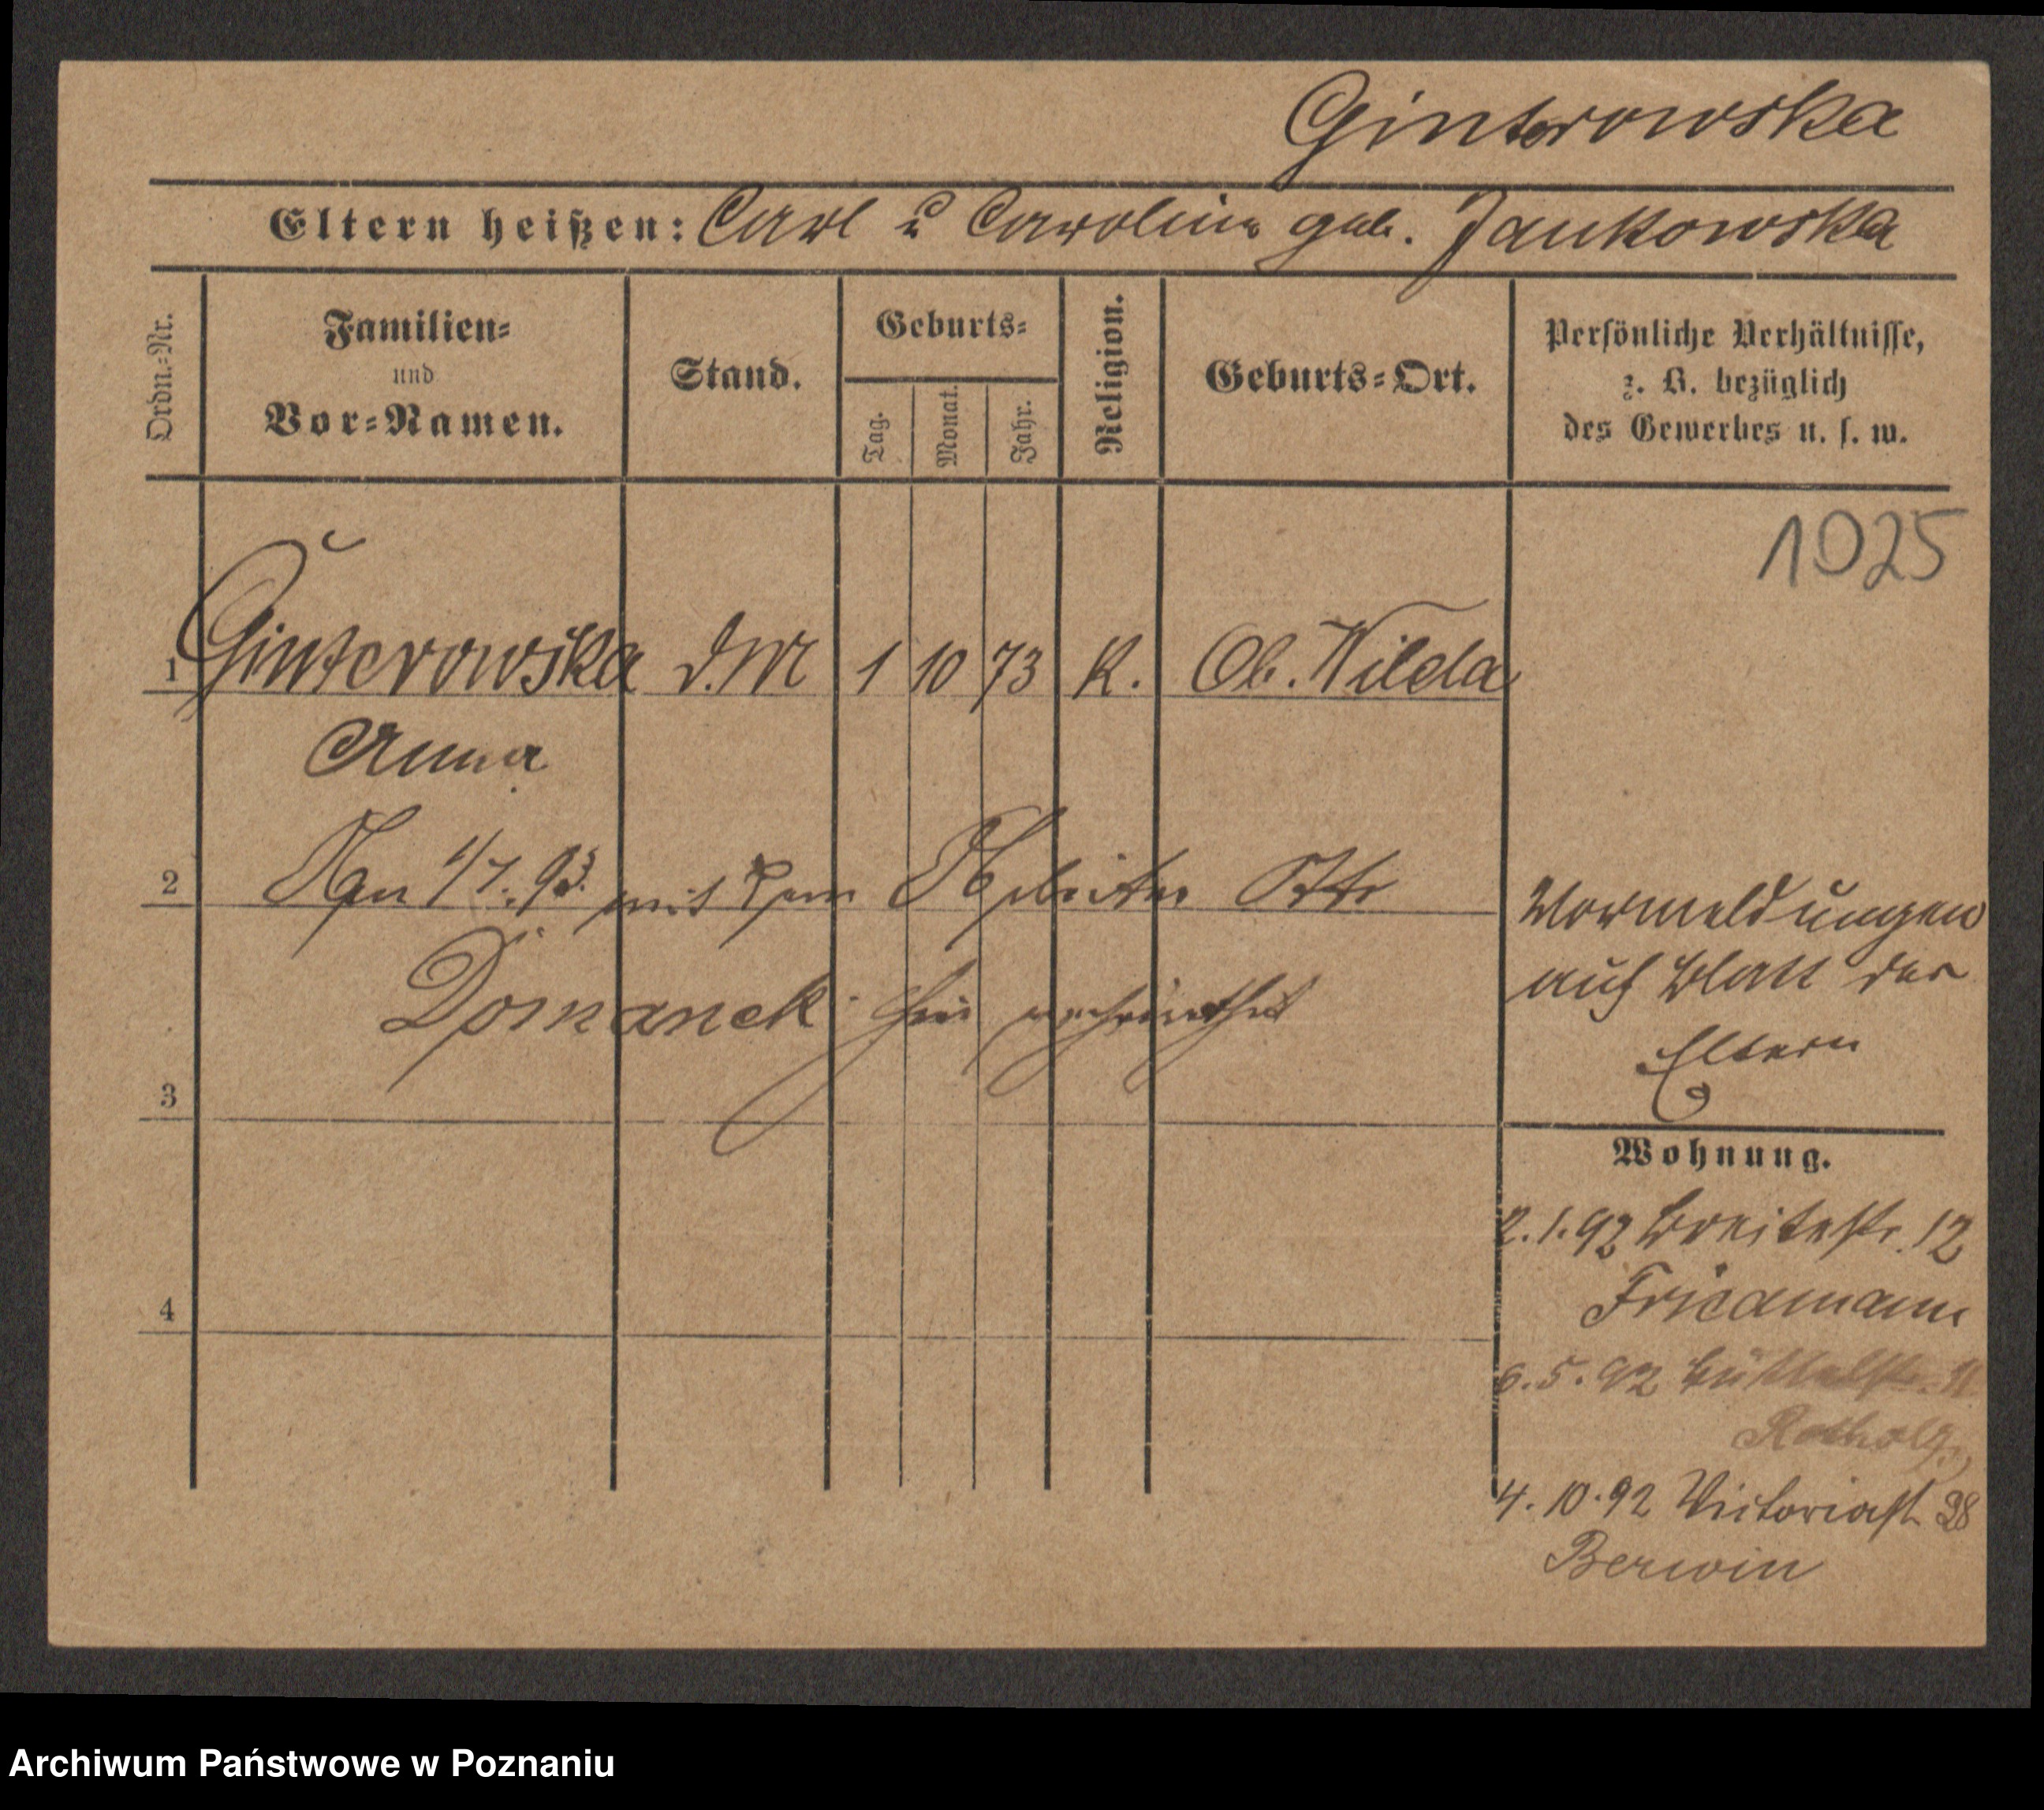 Ginterowska
Eltern heißen: Carl u Caroline geb. Jankowska
Ordn.-Nr.
Familien-
und
Vor-Namen.
Stand.
Geburts-
Tag.
Monat.
Jahr.
Religion.
Geburts-Ort.
Persönliche Verhältnisse,
z. B. bezüglich
des Gewerbes u. s. w.
1025
1 Ginterowska d. M 1 10 73 K. Ob. Wilda
Anna
2 Am 1/7. 93. mit dem Arbeiter Otto
Domanek hier verheirathet
Vormeldungen
auf Blatt der
Eltern
3
Wohnung.
2.1.92 Breitestr. 12
Friedmann
4
6.5.92 Büttelstr. 11
Rothholz
4.10.92 Victoriastr 28
Berwin
Archiwum Państwowe w Poznaniu